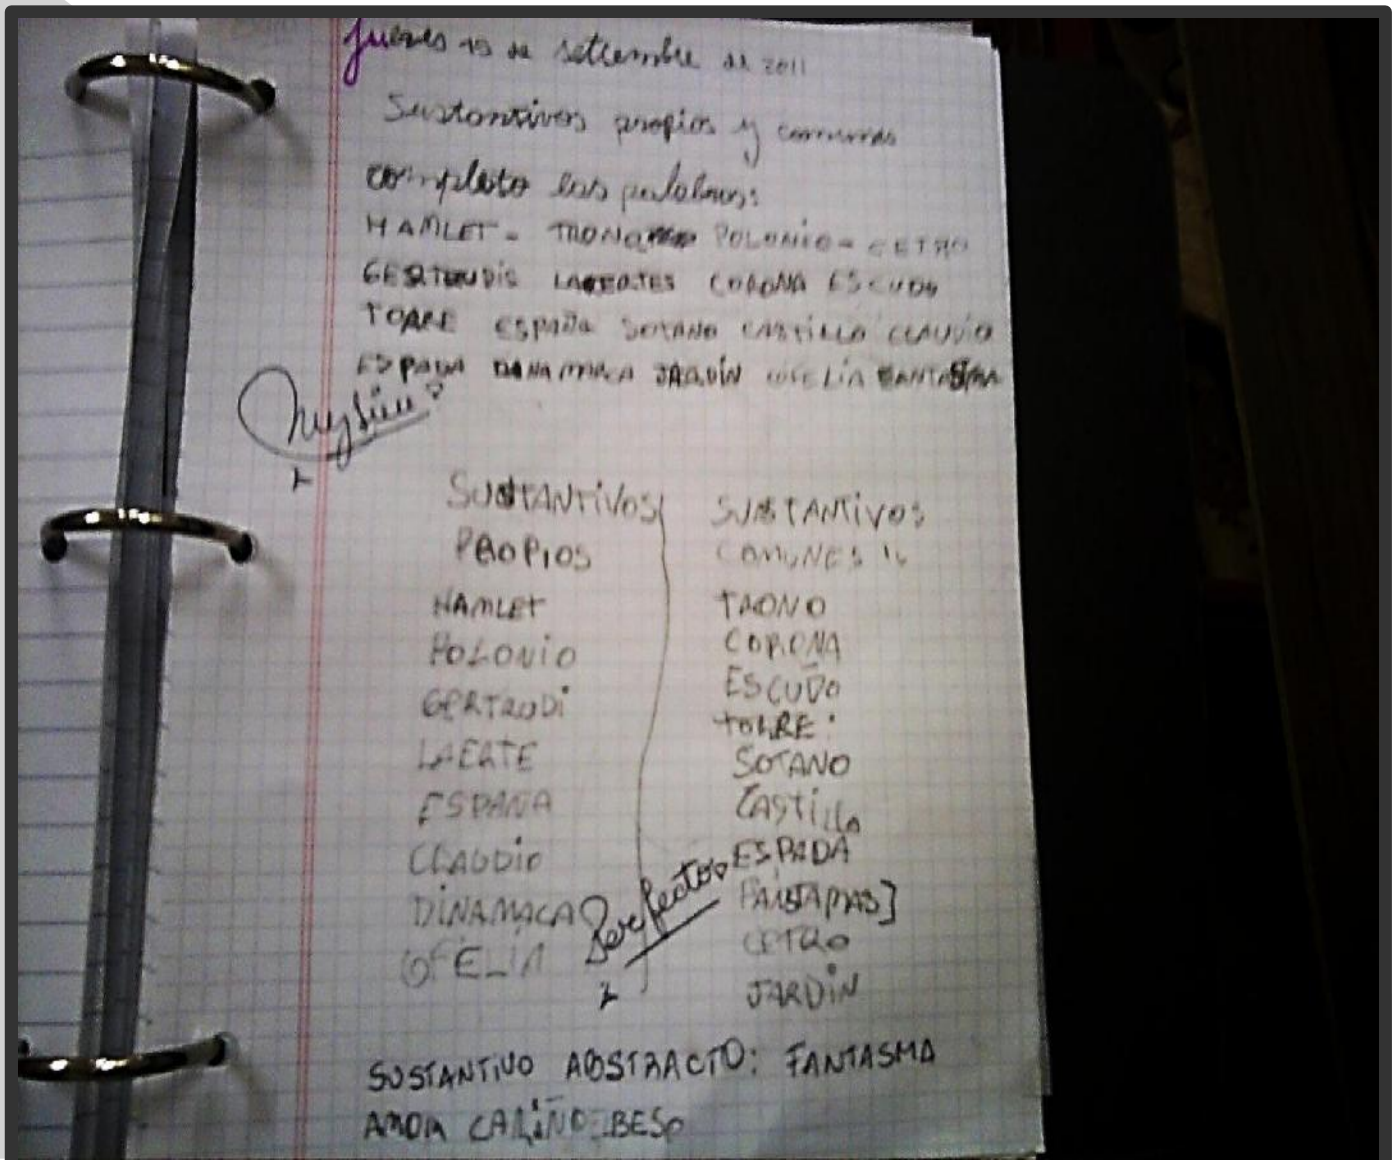 Jueves 15 de setiembre de 2011
Sustantivos propios y comunes
completo las palabras:
HAMLET - TRONO POLONIO - CETRO
GERTRUDIS LAERTES CORONA ESCUDO
TORRE ESPAÑA SOTANO CASTILLO CLAUDIO
ESPADA DINAMACA JARDÍN OFELIA FANTASMA
Muy bien
SUSTANTIVOS
PROPIOS
HAMLET
POLONIO
GERTRUDI
LAERTE
ESPAÑA
CLAUDIO
DINAMACA
OFELIA
SUSTANTIVOS
COMUNES
TRONO
CORONA
ESCUDO
TORRE
SOTANO
CASTILLO
ESPADA
CETRO
JARDIN
Perfecto
SUSTANTIVO ABSTRACTO: FANTASMA
AMOR CARIÑO BESO